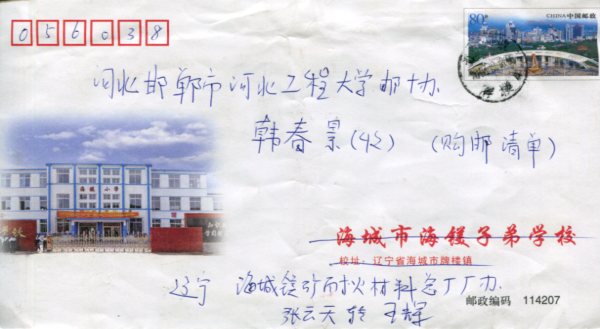 056038
80分 CHINA 中国邮政
河北邯郸市河北工程大学邮协
韩春景(收) (购邯清单)
海镁小学
海城市海镁子弟学校
校址:辽宁省海城市牌楼镇
辽宁 海城镁矿耐火材料总厂厂办
张云天转 王辉
邮政编码 114207